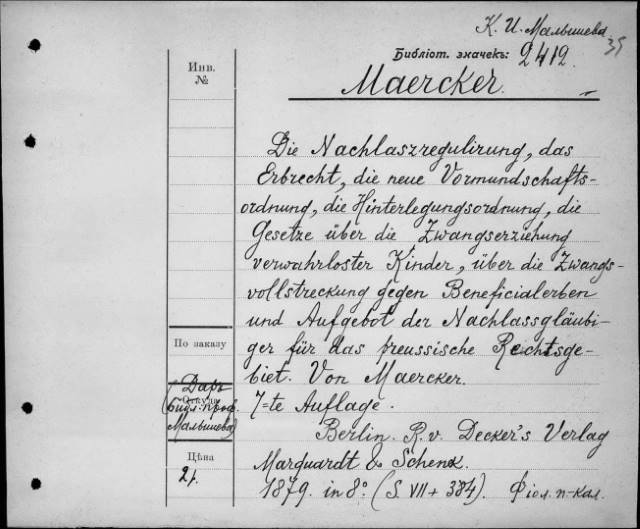 К. И. Малышева
35
Библіот. значекъ: 2412.
Инв.
№
Maercker.
Die Nachlaszregulirung, das
Erbrecht, die neue Vormundschafts-
ordnung, die Hinterlegungsordnung, die
Gesetze über die Zwangserziehung
verwahrloster Kinder, über die Zwangs-
vollstreckung gegen Beneficialerben
und Aufgebot der Nachlassgläubi-
ger für das preussische Rechtsge-
biet. Von Maercker.
7=te Auflage.
Berlin. R. v. Decker's Verlag
Marquardt & Schenk.
1879. in 8º. (S. VII + 384). Фіол. п-кал.
По заказу
Даръ
Откуда
(Библ. проф.
Малышева)
Цѣна
2 р.